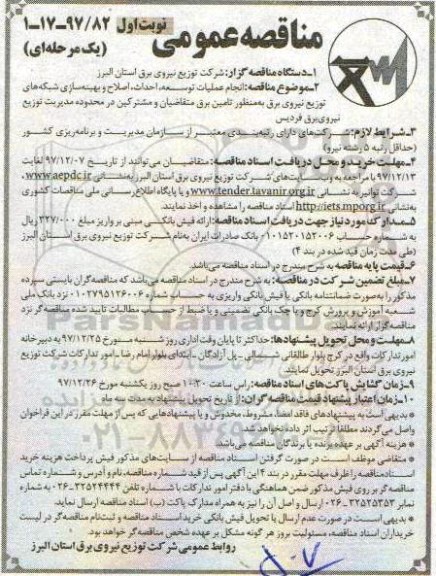 مناقصه عمومی
نوبت اول
۱-۱۷-۹۷/۸۲
(یک مرحله‌ای)
۱-دستگاه مناقصه گزار: شرکت توزیع نیروی برق استان البرز
۲-موضوع مناقصه: انجام عملیات توسعه، احداث، اصلاح و بهینه‌سازی شبکه‌های
توزیع نیروی برق به‌منظور تامین برق متقاضیان و مشترکین در محدوده مدیریت توزیع
نیروی‌برق فردیس
۳-شرایط لازم: شرکت‌های دارای رتبه‌بندی معتبر از سازمان مدیریت و برنامه‌ریزی کشور
(حداقل رتبه ۵ رشته نیرو)
۴-مهلت خرید و محل دریافت اسناد مناقصه: متقاضیان می‌توانند از تاریخ ۹۷/۱۲/۰۷ لغایت
۹۷/۱۲/۱۳ با مراجعه به وب‌سایت‌های شرکت توزیع نیروی برق استان البرز به‌نشانی www.aepdc.ir،
شرکت توانیر به نشانی www.tender.tavanir.org.ir و یا پایگاه اطلاع‌رسانی ملی مناقصات کشوری
به‌نشانی http://iets.mporg.ir اسناد مناقصه را مشاهده و اخذ نمایند.
۵-مدارک مورد نیاز جهت دریافت اسناد مناقصه: ارائه فیش بانکی مبنی بر واریز مبلغ ۳۲۷/۰۰۰ ریال
به شماره حساب ۰۱۰۱۵۲۰۱۵۲۰۰۶ بانک صادرات ایران به‌نام شرکت توزیع نیروی برق استان البرز
(طی مدت زمان قید شده در بند ۴)
۶-قیمت پایه مناقصه به شرح مندرج در اسناد مناقصه می‌باشد.
۷-مبلغ تضمین شرکت در مناقصه: به شرح مندرج در اسناد مناقصه می‌باشد که مناقصه‌گران بایستی سپرده
مذکور را به‌صورت ضمانتنامه بانکی یا فیش بانکی واریزی به حساب شماره ۰۱۰۲۷۹۵۱۲۶۰۰۶ نزد بانک ملی
شعبه آموزش و پرورش کرج و یا چک بانکی تضمینی و یا ضبط از حساب مطالبات تایید شده مناقصه‌گر نزد
مناقصه‌گزار ارائه نمایند.
۸-مهلت و محل تحویل پیشنهادها: حداکثر تا پایان وقت اداری روز شنبه مورخ ۹۷/۱۲/۲۵ به دبیرخانه
امور تدارکات واقع در کرج بلوار طالقانی شمالی-پل آزادگان-ابتدای بلوار امام رضا-امور تدارکات شرکت توزیع
نیروی برق استان البرز تحویل نمایند.
۹-زمان گشایش پاکت‌های اسناد مناقصه: راس ساعت ۱۰:۳۰ صبح روز یکشنبه مورخ ۹۷/۱۲/۲۶
۱۰-زمان اعتبار پیشنهاد قیمت مناقصه‌گران: از تاریخ تحویل پیشنهاد به مدت سه ماه
* بدیهی است به پیشنهادهای فاقد امضا، مشروط، مخدوش و یا پیشنهادهایی که پس از مهلت مقرر در این فراخوان
واصل می‌گردند مطلقا ترتیب اثر داده نخواهد شد.
* هزینه آگهی بر عهده برنده یا برندگان مناقصه می‌باشد
* متقاضی موظف است در صورت گرفتن اسناد مناقصه از سایت‌های مذکور فیش پرداخت هزینه خرید
اسناد مناقصه را ظرف مهلت مقرر در بند ۴ این آگهی پس از قید شماره مناقصه، نام و آدرس و شماره تماس
مناقصه‌گر بر روی فیش مذکور ضمن هماهنگی با دفتر امور تدارکات با شماره تلفن ۳۲۵۲۴۴۴۴-۰۲۶ به شماره
نمابر ۳۲۵۲۵۳۵۳-۰۲۶ ارسال و اصل آن را نیز به همراه مدارک پاکت (ب) اسناد مناقصه ارسال نماید.
* بدیهی است در صورت عدم ارسال یا تحویل فیش بانکی خرید اسناد مناقصه و ثبت‌نام مناقصه‌گر در لیست
خریداران اسناد مناقصه، مسئولیت بروز هر گونه مشکل بر عهده شخص مناقصه‌گر خواهد بود.
روابط عمومی شرکت توزیع نیروی برق استان البرز